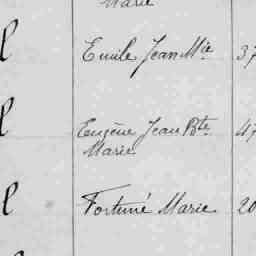 Marie
l Emile Jean Mie 37
l Eugène Jean Bte 47
Marie
l Fortuné Marie 20